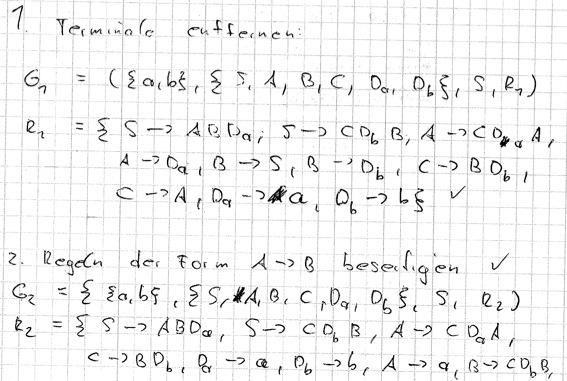 1. Terminale entfernen:
G₁ = ({a,b}, {S, A, B, C, Dₐ, D_b}, S, R₁)
R₁ = { S → ABDₐ, S → CD_b B, A → CDₐA,
A → Dₐ, B → S, B → D_b, C → BD_b,
C → A, Dₐ → a, D_b → b} ✓
2. Regeln der Form A → B beseitigen ✓
G₂ = { {a,b}, {S, A, B, C, Dₐ, D_b}, S, R₂)
R₂ = { S → ABDₐ, S → CD_b B, A → CDₐA,
C → BD_b, Dₐ → a, D_b → b, A → a, B → CD_b B,